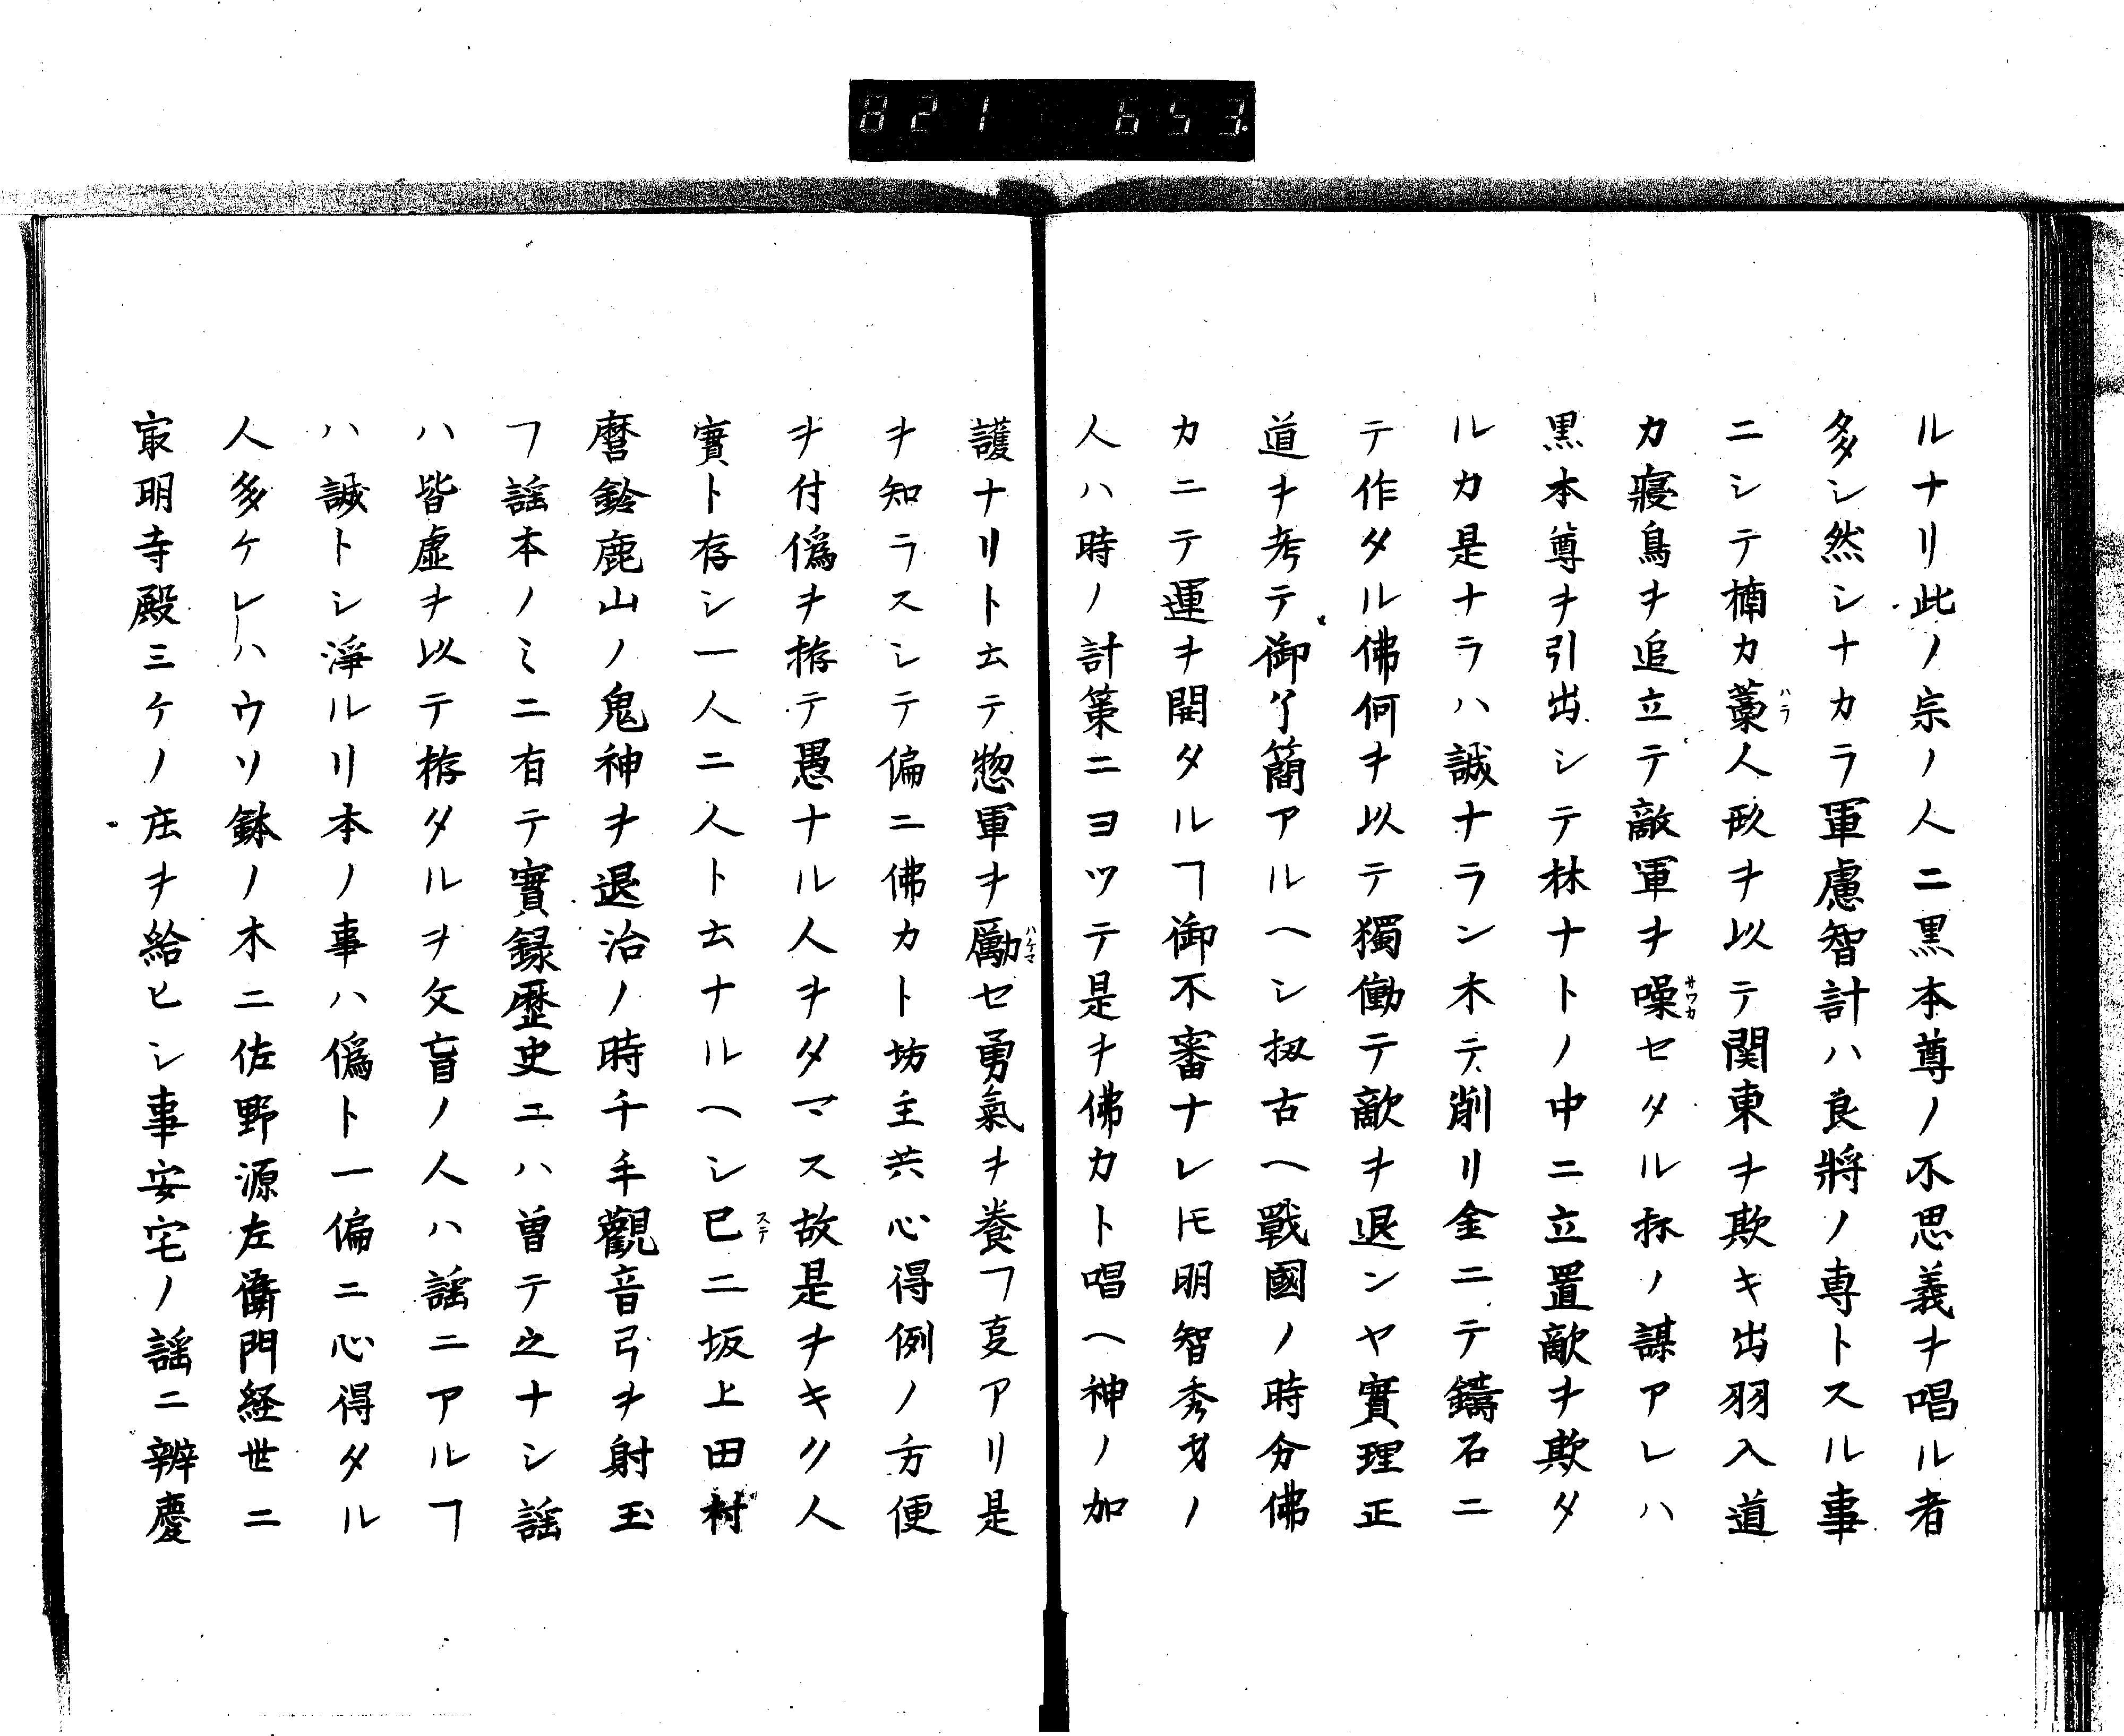 821 653.
ルナリ此ノ宗ノ人ニ黒本尊ノ不思義ヲ唱ル者
多シ然シナカラ軍慮智計ハ良將ノ専トスル事
ニシテ楠カ藁人形ヲ以テ関東ヲ欺キ出羽入道
カ寝鳥ヲ追立テ敵軍ヲ噪セタル類ノ謀アレハ
黒本尊ヲ引出シテ林ナトノ中ニ立置敵ヲ欺タ
ルカ是ナラハ誠ナラン木テ削リ金ニテ鑄石ニ
テ作タル佛何ヲ以テ獨働テ敵ヲ退ンヤ實理正
道ヲ考テ御了簡アルヘシ扨古ヘ戰國ノ時分佛
カニテ運ヲ開タルヿ御不審ナレ𪜈明智秀才ノ
人ハ時ノ計策ニヨツテ是ヲ佛カト唱ヘ神ノ加
護ナリト云テ惣軍ヲ勵セ勇氣ヲ養フ叓アリ是
ヲ知ラスシテ偏ニ佛カト坊主共心得例ノ方便
ヲ付偽ヲ拵テ愚ナル人ヲタマス故是ヲキク人
實ト存シ一人ニ人ト云ナルヘシ已ニ坂上田村
麿鈴鹿山ノ鬼神ヲ退治ノ時千手觀音弓ヲ射玉
フ謡本ノミニ有テ實録歴史エハ曽テ之ナシ謡
ハ皆虚ヲ以テ拵タルヲ文盲ノ人ハ謡ニアルヿ
ハ誠トシ淨ルリ本ノ事ハ偽ト一偏ニ心得タル
人多ケレハウソ鉢ノ木ニ佐野源左衛門経世ニ
㝡明寺殿三ケノ庄ヲ給ヒシ事安宅ノ謡ニ辨慶